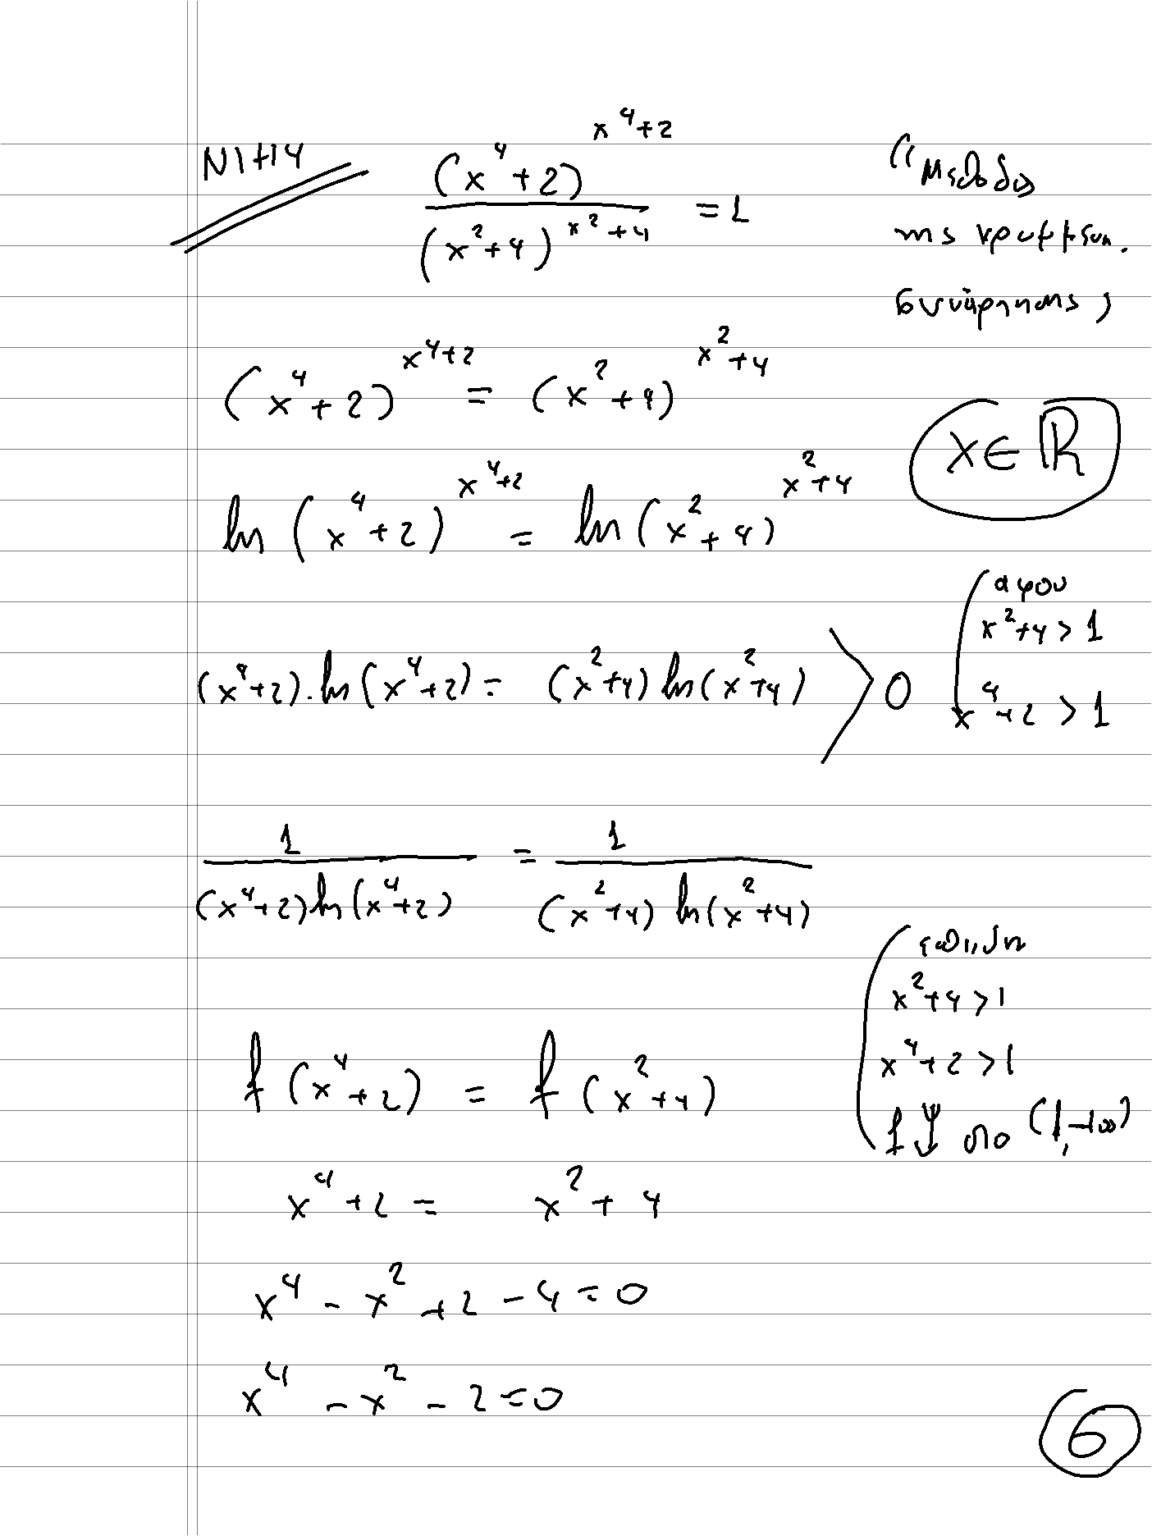 N1+14
(x⁴+2)^(x⁴+2) / (x²+4)^(x²+4) = 1
"Μέθοδος
της κρυμμένη.
συνάρτησης,
(x⁴+2)^(x⁴+2) = (x²+4)^(x²+4)
x∈ℝ
ln(x⁴+2)^(x⁴+2) = ln(x²+4)^(x²+4)
(x⁴+2)·ln(x⁴+2) = (x²+4)ln(x²+4) > 0
αφου
x²+4>1
x⁴+2>1
1/((x⁴+2)ln(x⁴+2)) = 1/((x²+4)ln(x²+4))
x²+4>1
x⁴+2>1
f↓ στο (1,+∞)
f(x⁴+2) = f(x²+4)
x⁴+2 = x²+4
x⁴-x²+2-4=0
x⁴-x²-2=0
6